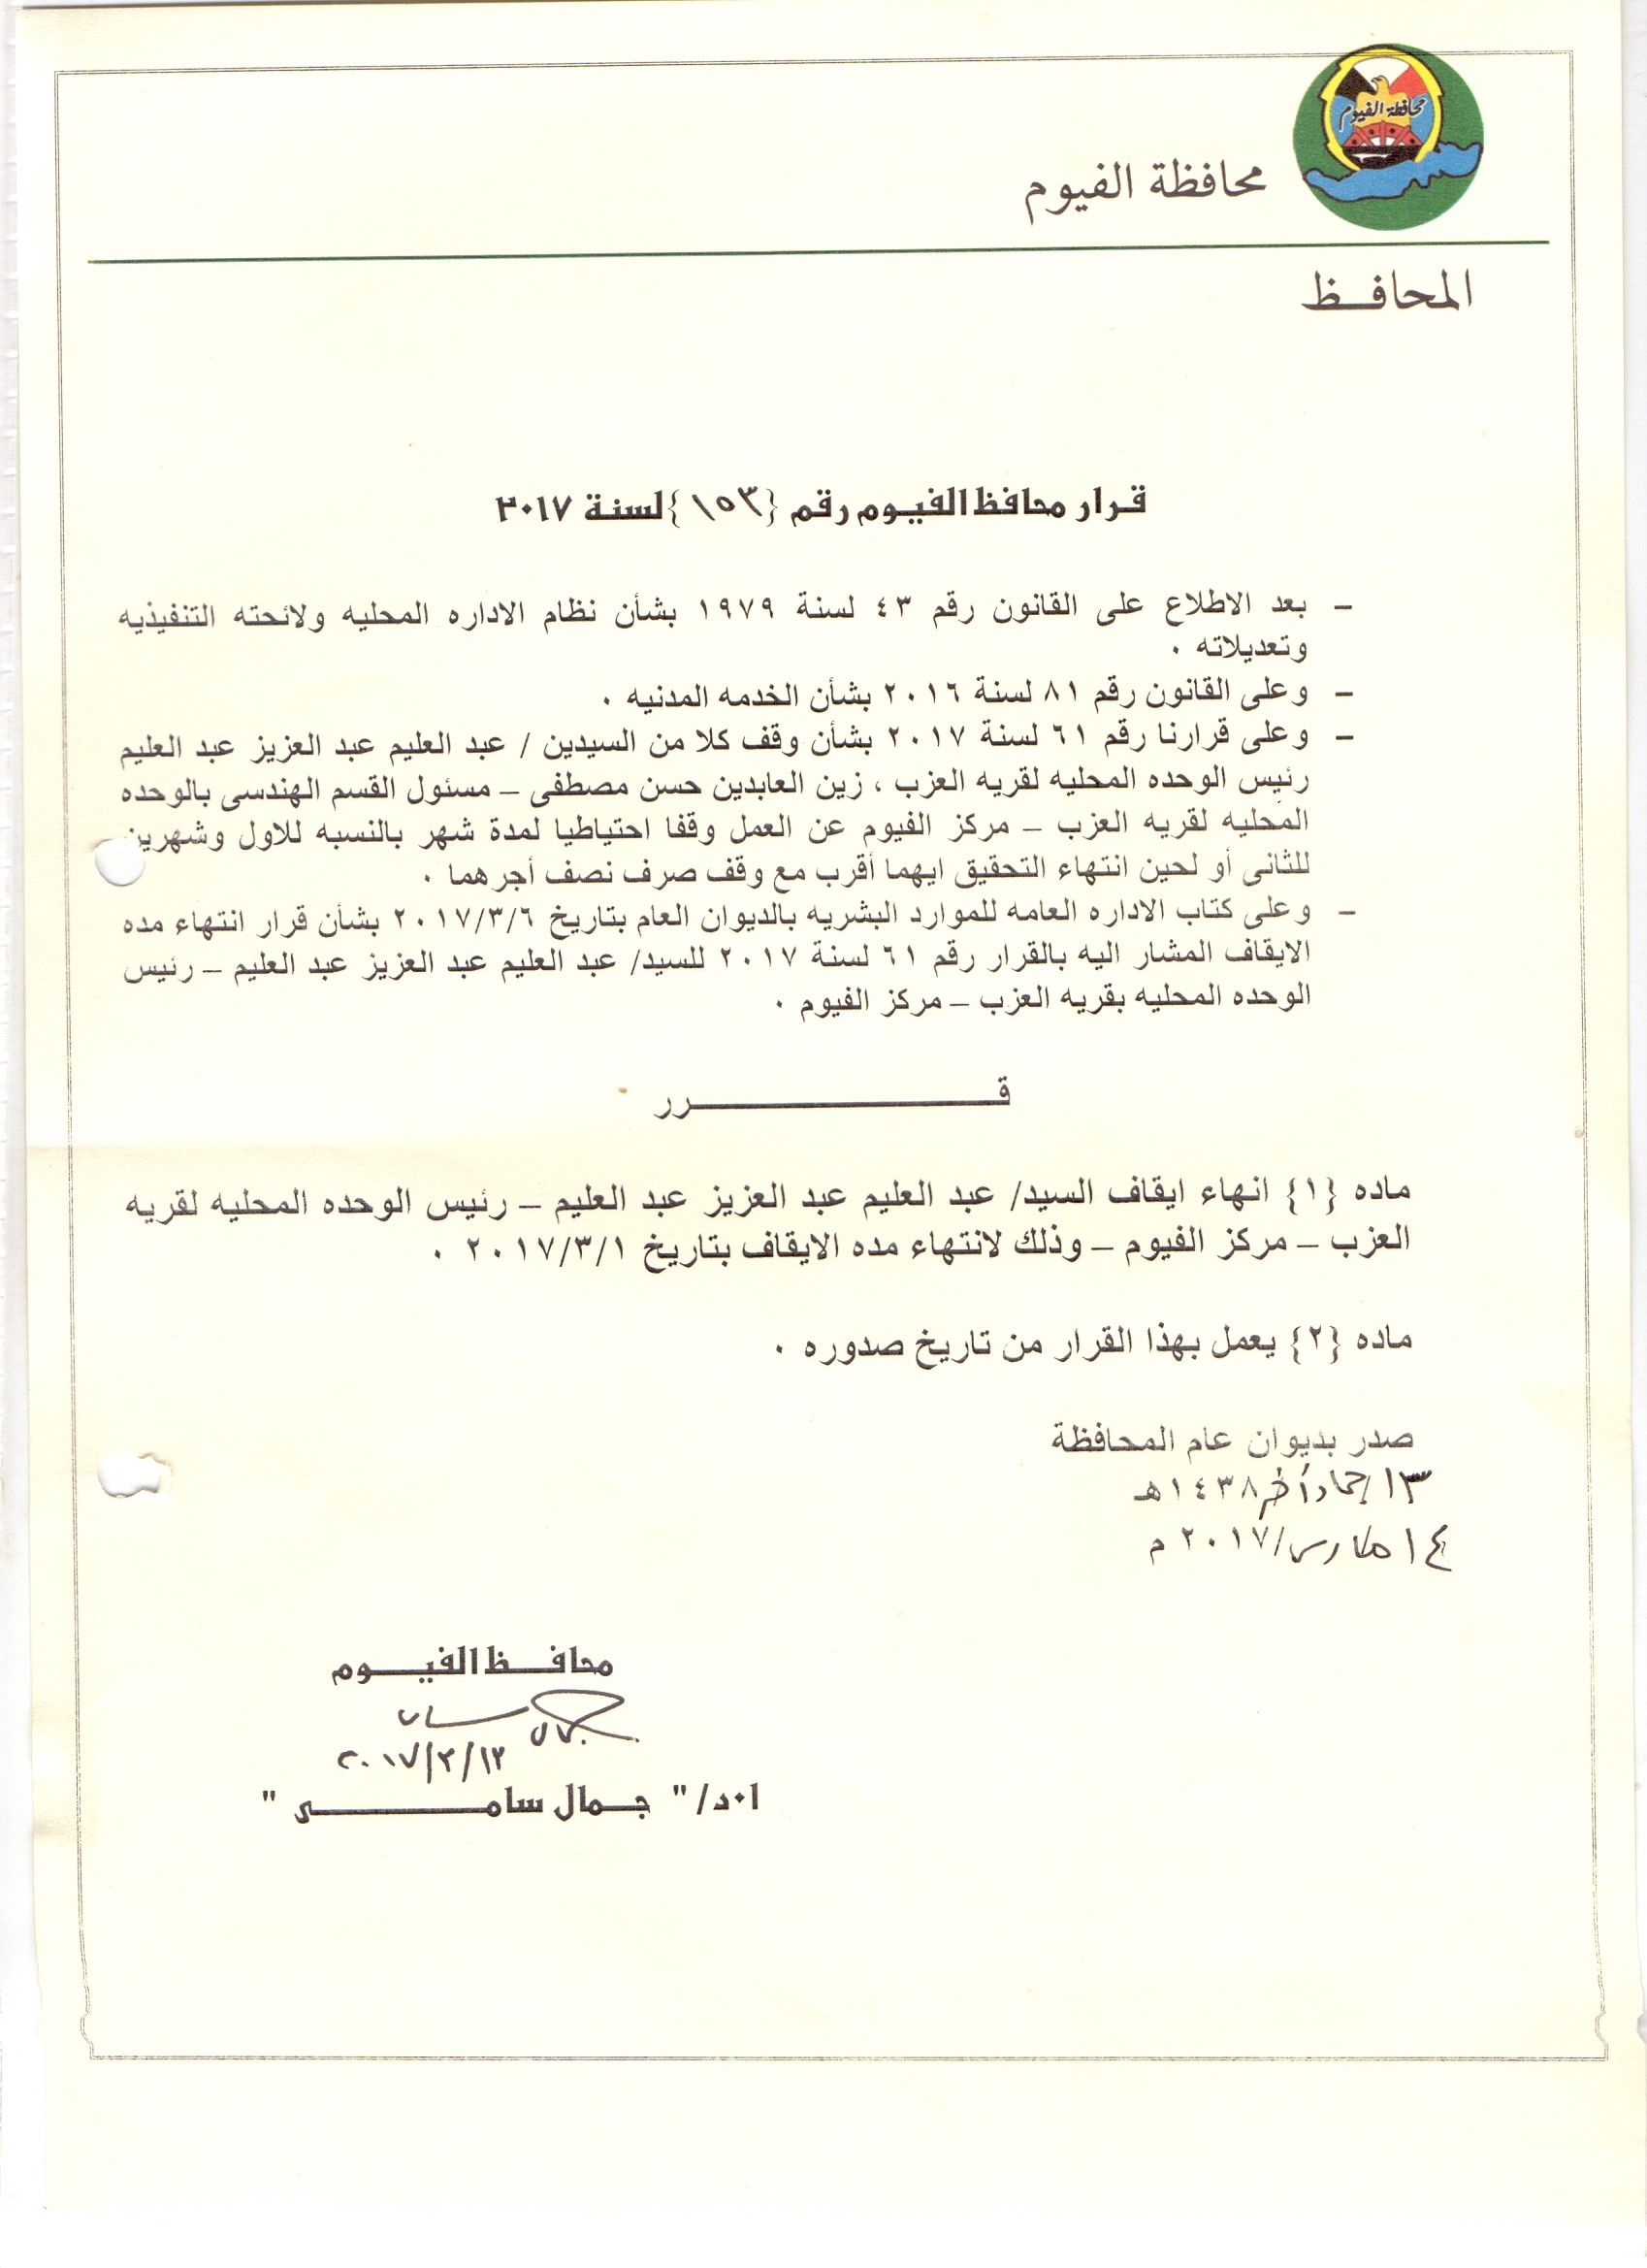 محافظة الفيوم
محافظة الفيوم
المحافـــظ
قـرار محافظ الفيـوم رقم {١٥٣} لسنة ٢٠١٧
– بعد الاطلاع على القانون رقم ٤٣ لسنة ١٩٧٩ بشأن نظام الاداره المحليه ولائحته التنفيذيه
وتعديلاته ٠
– وعلى القانون رقم ٨١ لسنة ٢٠١٦ بشأن الخدمه المدنيه ٠
– وعلى قرارنا رقم ٦١ لسنة ٢٠١٧ بشأن وقف كلا من السيدين / عبد العليم عبد العزيز عبد العليم
رئيس الوحده المحليه لقريه العزب ، زين العابدين حسن مصطفى – مسئول القسم الهندسى بالوحده
المحليه لقريه العزب – مركز الفيوم عن العمل وقفا احتياطيا لمدة شهر بالنسبه للاول وشهرين
للثانى أو لحين انتهاء التحقيق ايهما أقرب مع وقف صرف نصف أجرهما ٠
– وعلى كتاب الاداره العامه للموارد البشريه بالديوان العام بتاريخ ٢٠١٧/٣/٦ بشأن قرار انتهاء مده
الايقاف المشار اليه بالقرار رقم ٦١ لسنة ٢٠١٧ للسيد/ عبد العليم عبد العزيز عبد العليم – رئيس
الوحده المحليه بقريه العزب – مركز الفيوم ٠
قـــــــــــــــرر
ماده {١} انهاء ايقاف السيد/ عبد العليم عبد العزيز عبد العليم – رئيس الوحده المحليه لقريه
العزب – مركز الفيوم – وذلك لانتهاء مده الايقاف بتاريخ ٢٠١٧/٣/١ ٠
ماده {٢} يعمل بهذا القرار من تاريخ صدوره ٠
صدر بديوان عام المحافظة
١٣/جماد آخر ١٤٣٨هـ
١٤/مارس/٢٠١٧ م
محافـــظ الفيـــــوم
جمال سامى
٢٠١٧/٣/١٣
ا٠د/ " جـــمال سامـــــــــــــى "